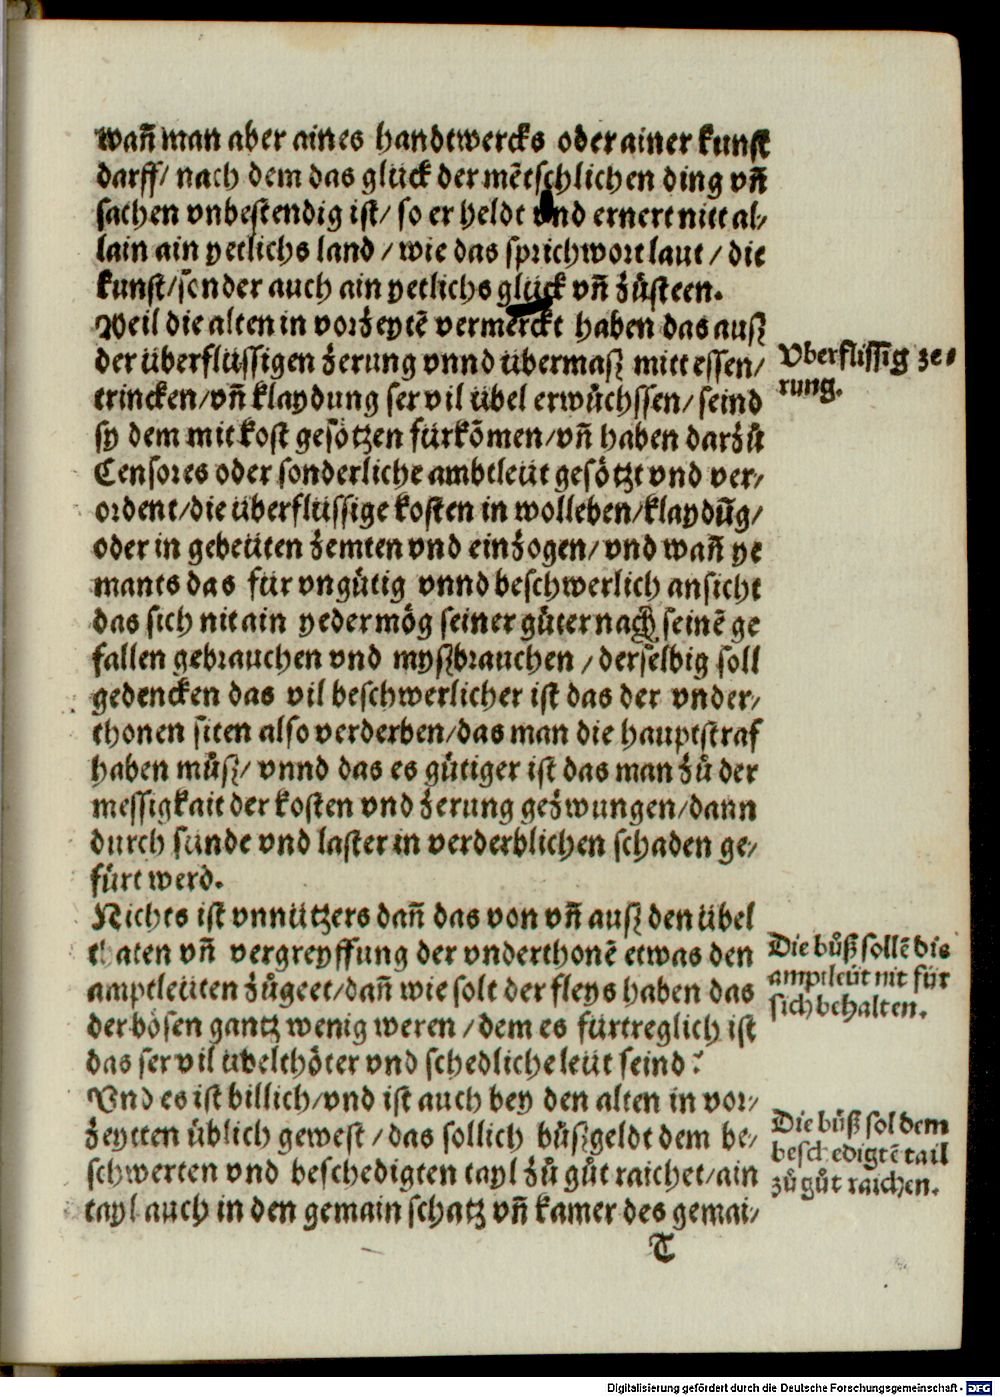 wañ man aber aines handtwercks oder ainer kunst
darff/ nach dem das glück der mẽtschlichen ding vñ
sachen vnbestendig ist/ so er heldt vnd ernert nitt al/
lain ain yetlichs land / wie das sprichwort laut / die
kunst/ sonder auch ain yetlichs glück vñ zůsteen.
Weil die alten in vorzeytẽ vermerckt haben das auß
der überflüssigen zerung vnnd übermaß mitt essen/
trincken/ vñ klaydung ser vil übel erwůchssen/ seind
sy dem mit kost gesötzen fürkõmen/ vñ haben darzů
Censores oder sonderliche ambtleüt gesötzt vnd ver/
ordent/ die überflüssige kosten in wolleben/ klaydũg/
oder in gebeüten zemten vnd einzogen/ vnd wañ ye
mants das für vngütig vnnd beschwerlich ansicht
das sich nit ain yeder mög seiner güter nach seinẽ ge
fallen gebrauchen vnd myßbrauchen / derselbig soll
gedencken das vil beschwerlicher ist das der vnder/
thonen siten also verderben/ das man die hauptstraf
haben můß/ vnnd das es gütiger ist das man zů der
messigkait der kosten vnd zerung gezwungen/ dann
durch sünde vnd laster in verderblichen schaden ge/
fürt werd.
Nichts ist vnnützers dañ das von vñ auß den übel
thaten vñ vergreyffung der vnderthonẽ etwas den
amptleüten zůgeet/ dañ wie solt der fleys haben das
der bösen gantz wenig weren / dem es fürtreglich ist
das ser vil übelthöter vnd schedliche leüt seind?
Vnd es ist billich/ vnd ist auch bey den alten in vor/
zeytten üblich gewest / das sollich bůßgeldt dem be/
schwerten vnd beschedigten tayl zů gůt raichet/ ain
tayl auch in den gemain schatz vñ kamer des gemai/
T
Vberflissig ze/
rung.
Die bůß sollẽ die
amptleüt nit für
sich behalten.
Die bůß sol dem
beschedigtẽ tail
zů gůt raichen.
Digitalisierung gefördert durch die Deutsche Forschungsgemeinschaft - DFG